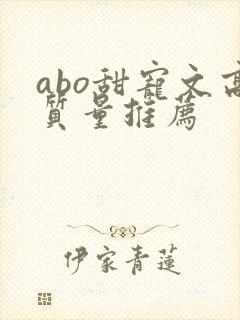 abo甜寵文高
質量推薦
伊家青蓮